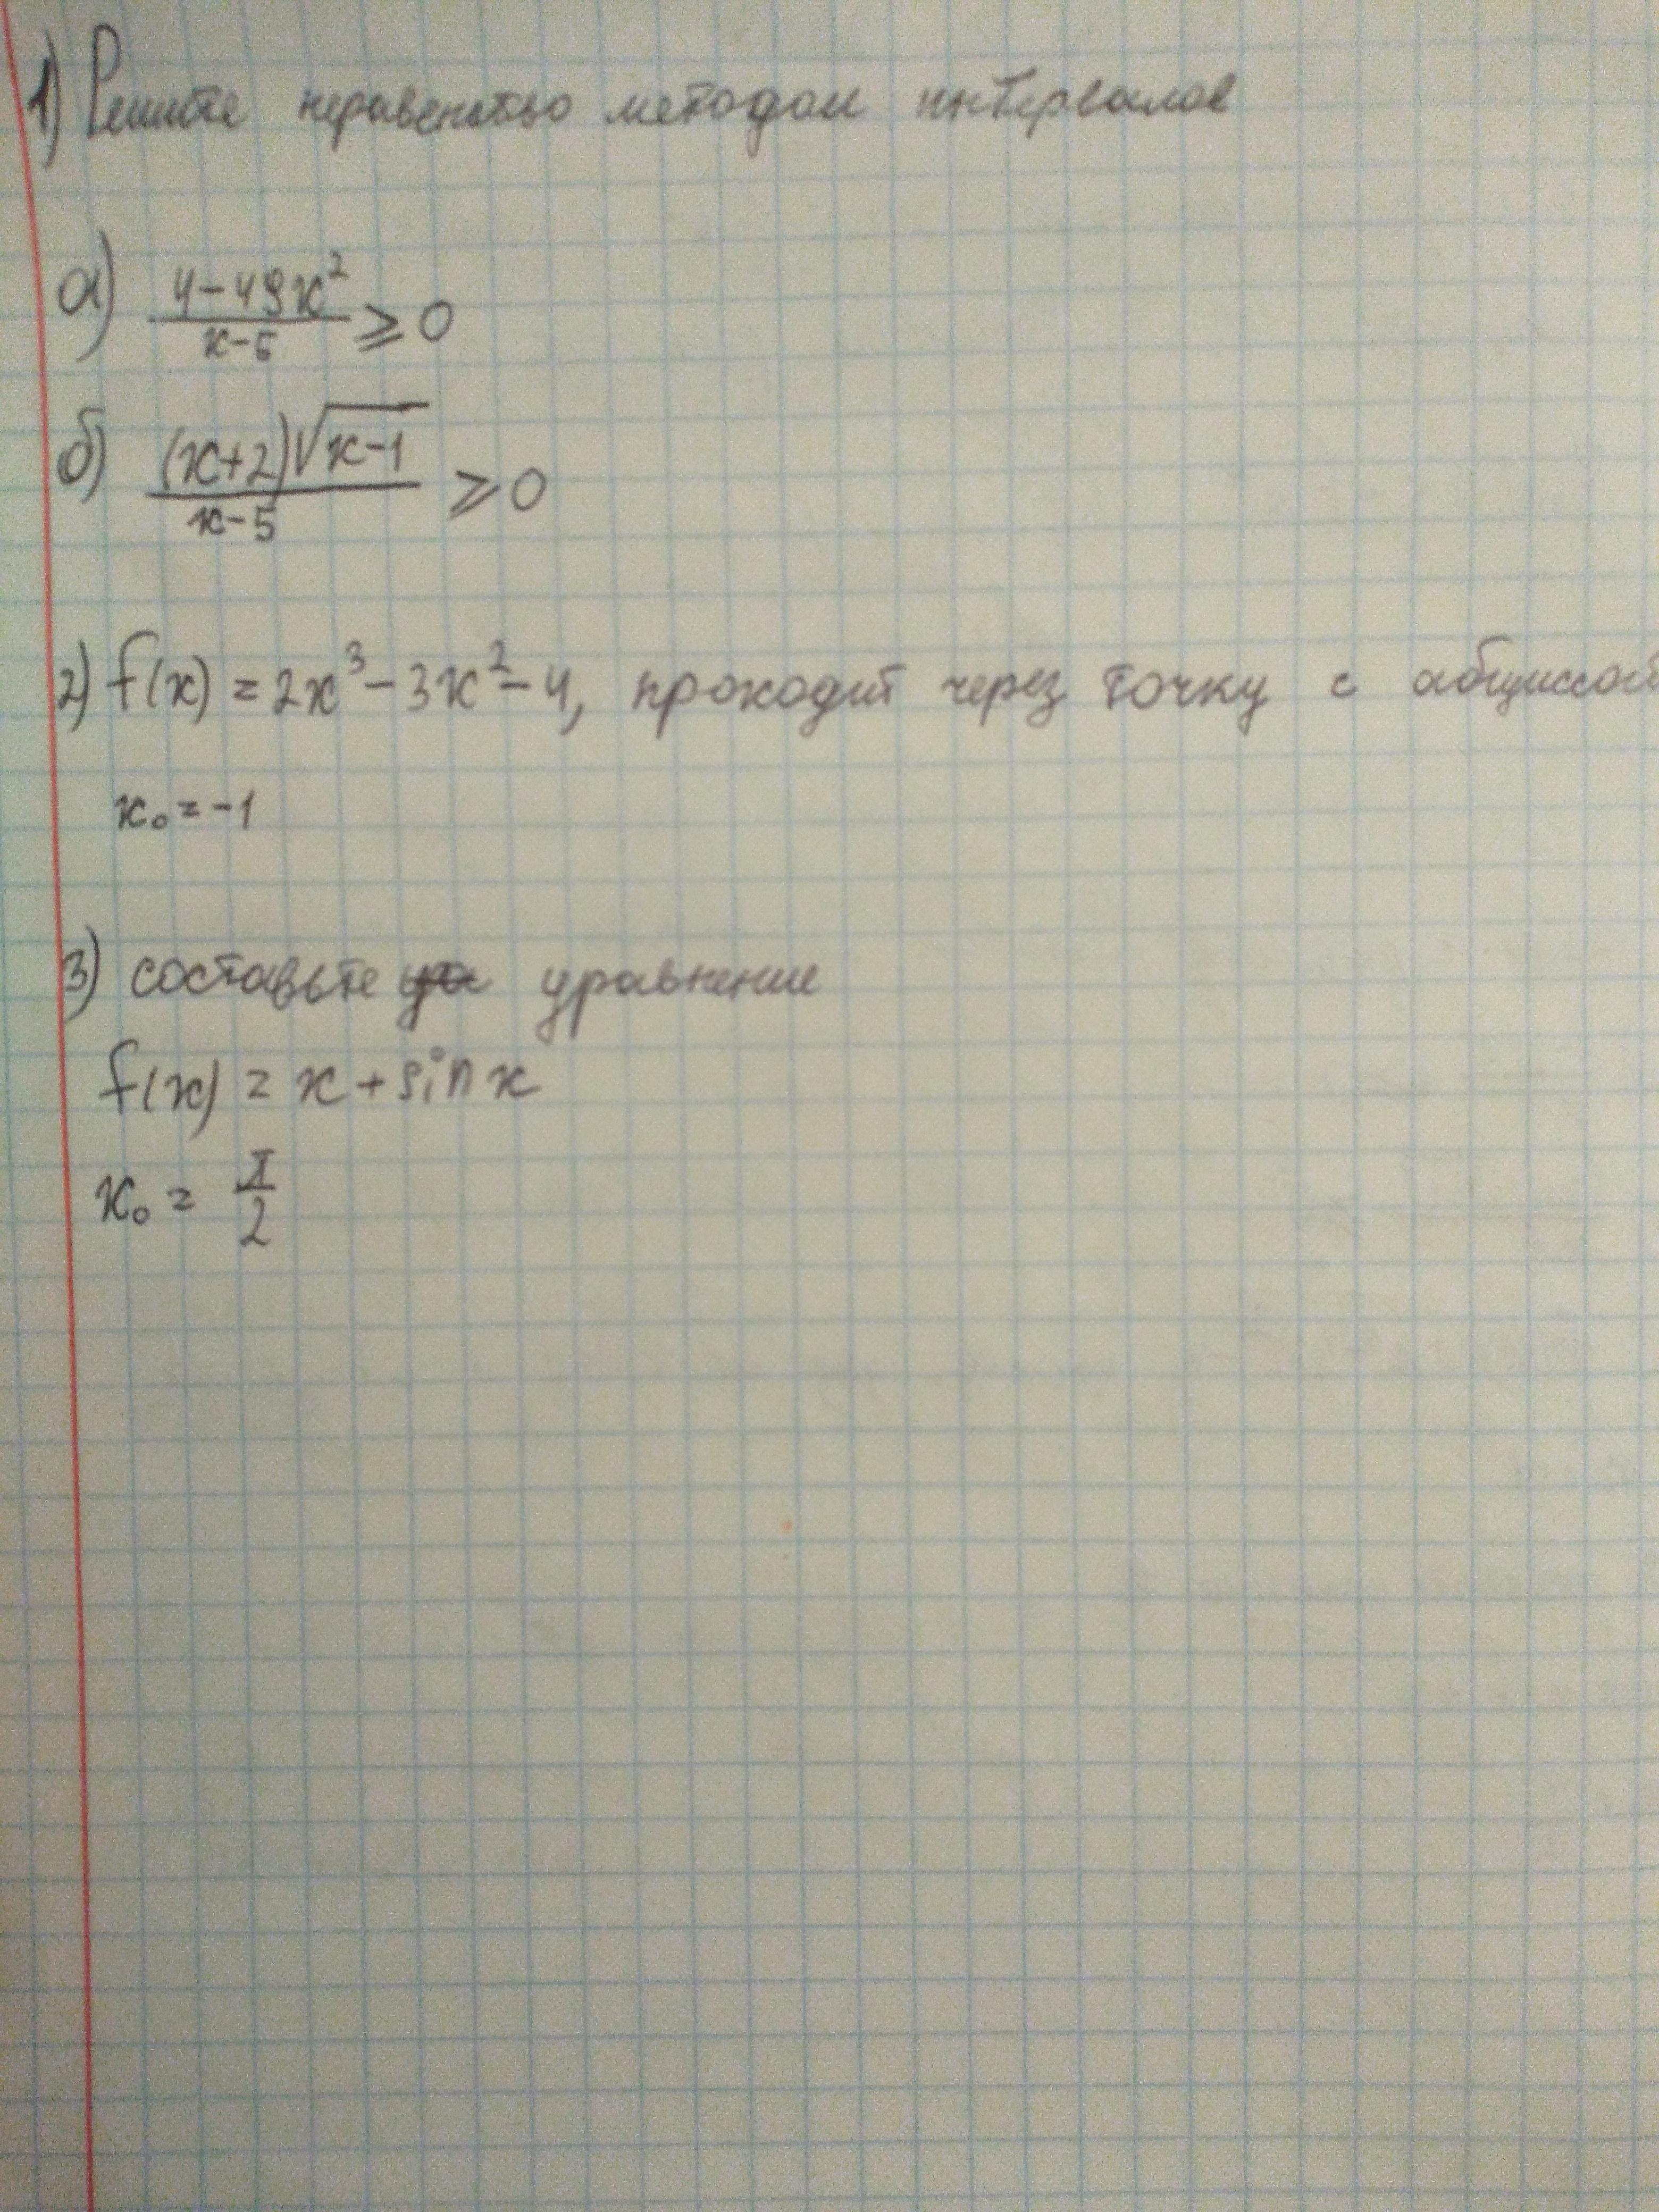 1) Решите неравенство методом интервалов
а) (4-49x²)/(x-5) ⩾ 0
б) ((x+2)√(x-1))/(x-5) ⩾ 0
2) f(x) = 2x³-3x²-4, проходит через точку с абциссой
x₀ = -1
3) составьте уравнение
f(x) = x + sin x
x₀ = π/2